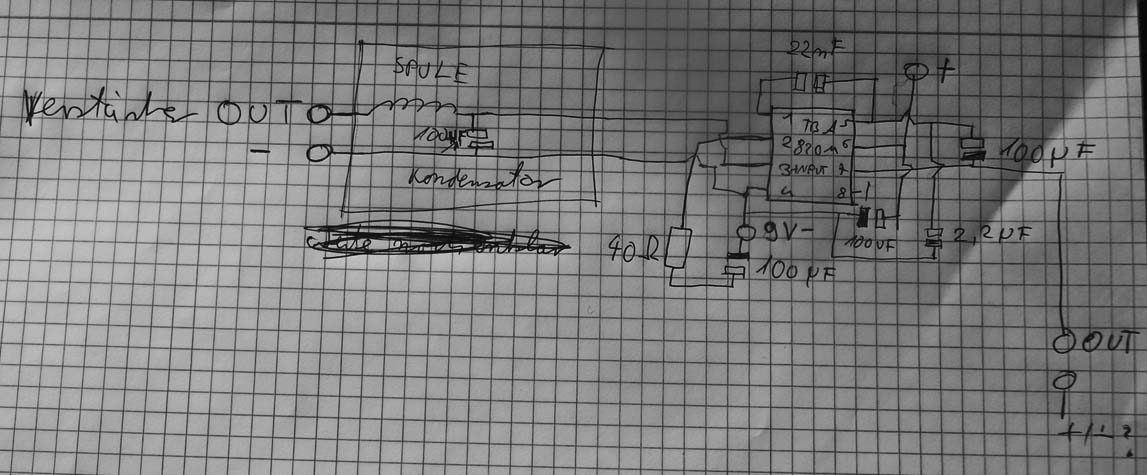 22nF
+
SPULE
Verstärker OUT
100µF
1 TBA 5
2 820M 6
3 INPUT 7
4 8
100µF
-
Kondensator
40Ω
9V-
100µF
100µF
2,2µF
OUT
+/-?